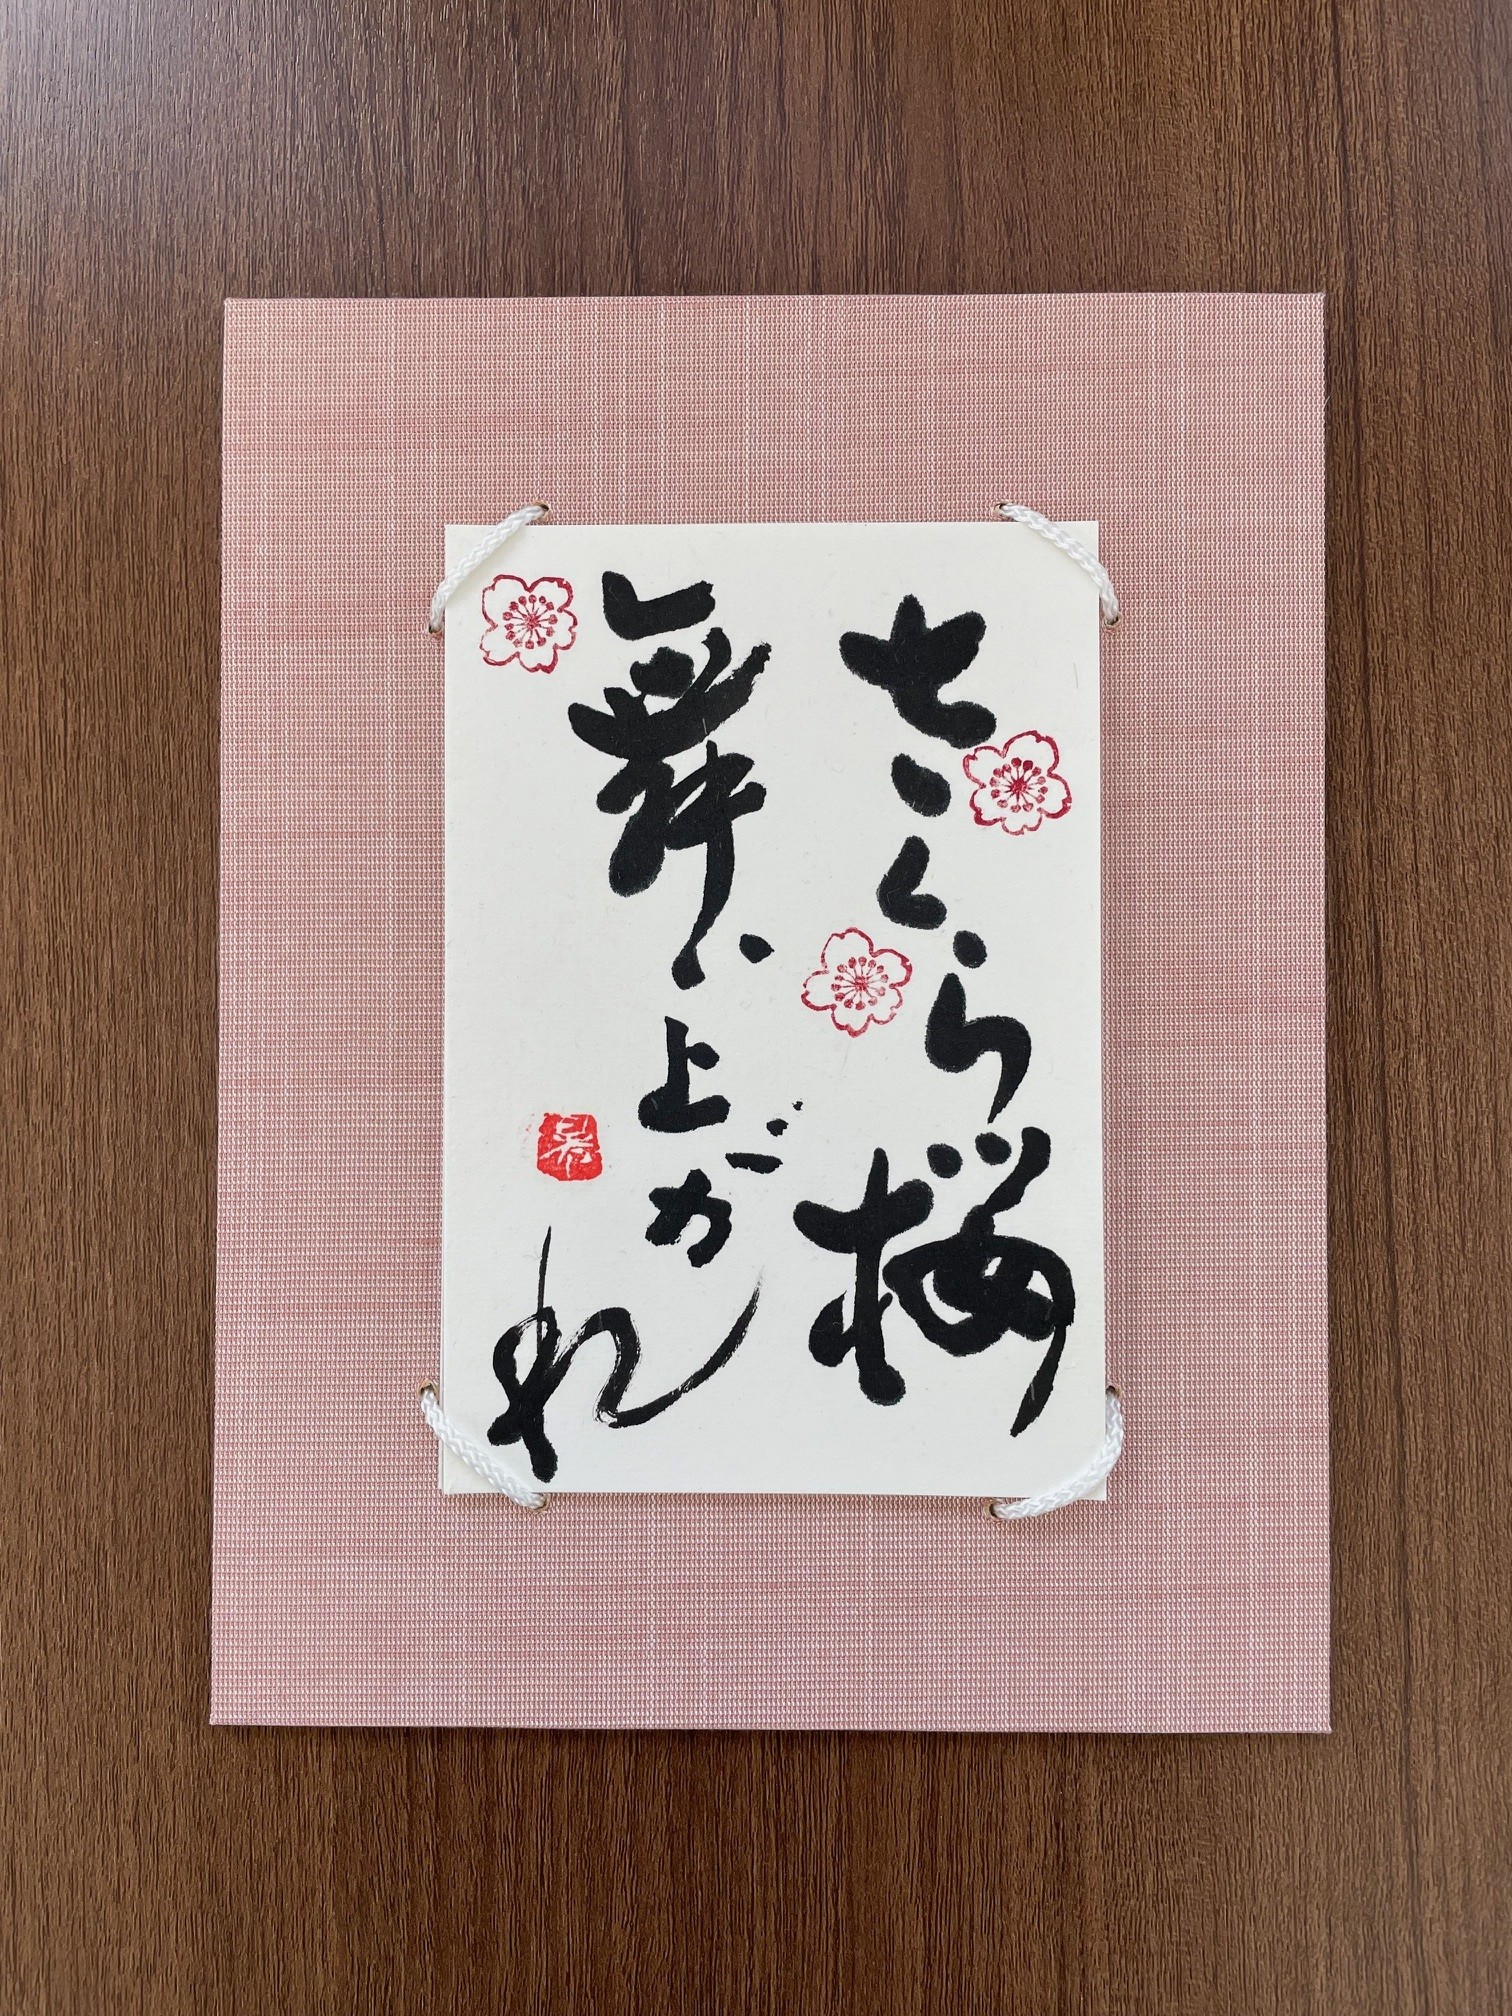 さくら桜
舞い上がれ